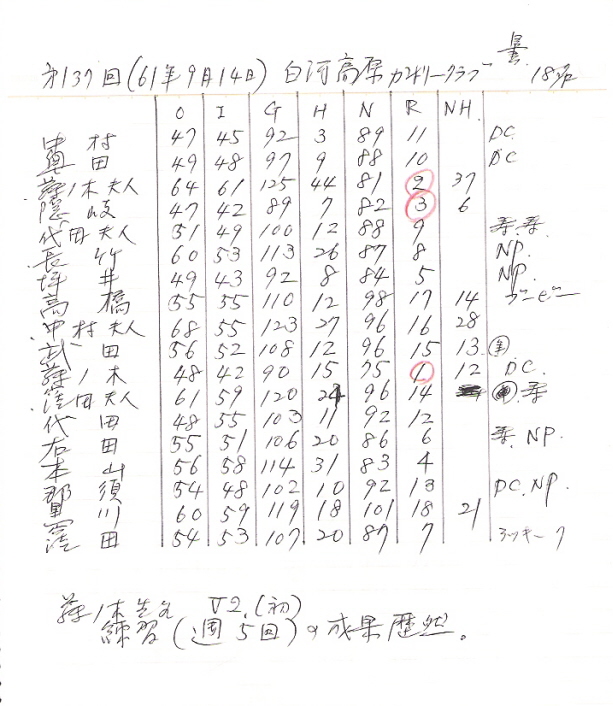 第137回(61年9月14日) 白河高原カントリークラブ 曇 18名
O I G H N R NH
中村 47 45 92 3 89 11 DC.
真田 49 48 97 9 88 10 DC
薛ノ木夫人 64 61 125 44 81 2 37
隠岐 47 42 89 7 82 3 6
代田夫人 51 49 100 12 88 9
長竹 60 53 113 26 87 8 NP.
坪井 49 43 92 8 84 5 NP.
高橋 55 55 110 12 98 17 14 ブービー
中村夫人 68 55 123 27 96 16 28
武田 56 52 108 12 96 15 13
薛ノ木 48 42 90 15 75 1 12 DC.
窪田夫人 61 59 120 24 96 14
代田 48 55 103 11 92 12
右田 55 51 106 20 86 6 NP.
本山 56 58 114 31 83 4
那須 54 48 102 10 92 13 DC. NP.
里川 60 59 119 18 101 18 21
窪田 54 53 107 20 87 7 ラッキー7
薛ノ木先生 V2.(初)
練習(週5回)の成果歴然。